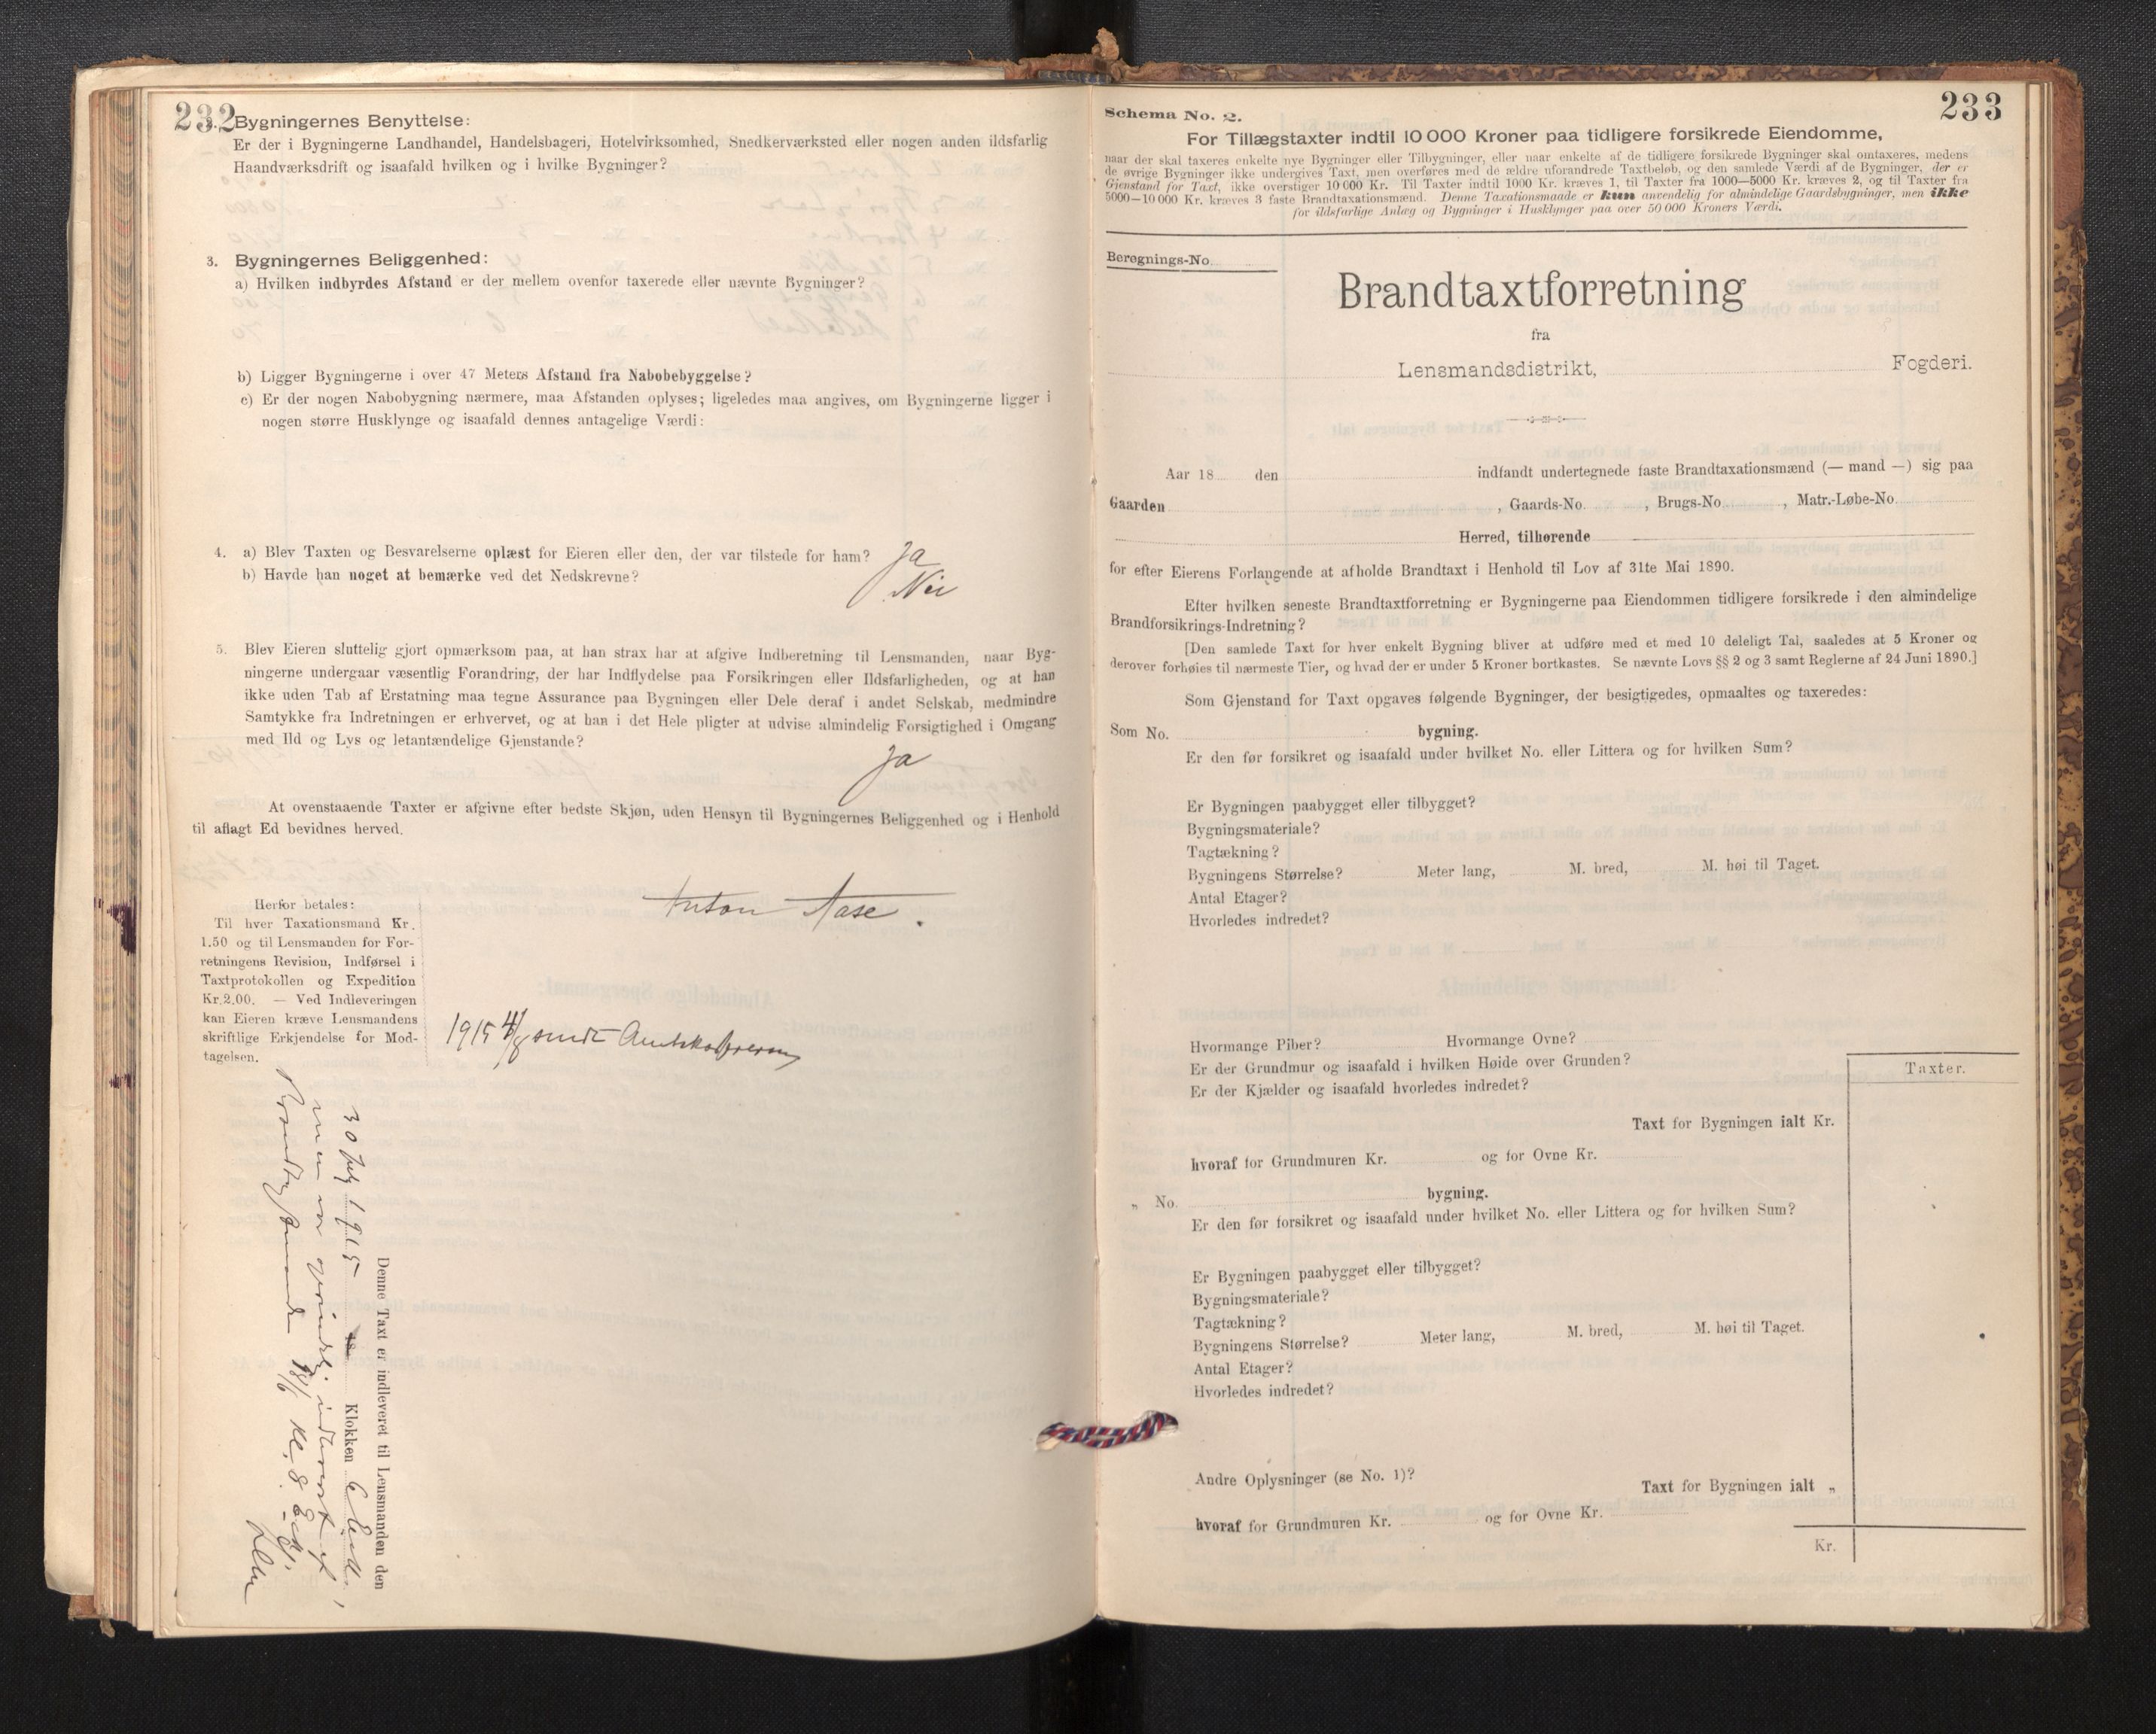 232
2. Bygningernes Benyttelse:
Er der i Bygningerne Landhandel, Handelsbageri, Hotelvirksomhed, Snedkerværksted eller nogen anden ildsfarlig
Haandværksdrift og isaafald hvilken og i hvilke Bygninger?
3. Bygningernes Beliggenhed:
a) Hvilken indbyrdes Afstand er der mellem ovenfor taxerede eller nævnte Bygninger?
b) Ligger Bygningerne i over 47 Meters Afstand fra Nabobebyggelse?
c) Er der nogen Nabobygning nærmere, maa Afstanden oplyses; ligeledes maa angives, om Bygningerne ligger i
nogen større Husklynge og isaafald dennes antagelige Værdi:
4. a) Blev Taxten og Besvarelserne oplæst for Eieren eller den, der var tilstede for ham? Ja
b) Havde han noget at bemærke ved det Nedskrevne? Nei
5. Blev Eieren sluttelig gjort opmærksom paa, at han strax har at afgive Indberetning til Lensmanden, naar Byg-
ningerne undergaar væsentlig Forandring, der har Indflydelse paa Forsikringen eller Ildsfarligheden, og at han
ikke uden Tab af Erstatning maa tegne Assurance paa Bygningen eller Dele deraf i andet Selskab, medmindre
Samtykke fra Indretningen er erhvervet, og at han i det Hele pligter at udvise almindelig Forsigtighed i Omgang
med Ild og Lys og letantændelige Gjenstande?
Ja
At ovenstaaende Taxter er afgivne efter bedste Skjøn, uden Hensyn til Bygningernes Beliggenhed og i Henhold
til aflagt Ed bevidnes herved.
Anton Aase.
Herfor betales:
Til hver Taxationsmand Kr.
1.50 og til Lensmanden for For-
retningens Revision, Indførsel i
Taxtprotokollen og Expedition
Kr. 2.00. — Ved Indleveringen
kan Eieren kræve Lensmandens
skriftlige Erkjendelse for Mod-
tagelsen.
1915 4/8 sendt Amtskassereren
Denne Taxt er indleveret til Lensmanden den
30 July 1915 18 Klokken 6 Eftm,
men var indleveret af
18/6 Kl. 8 Eft,
233
Schema No. 2.
For Tillægstaxter indtil 10 000 Kroner paa tidligere forsikrede Eiendomme,
naar der skal taxeres enkelte nye Bygninger eller Tilbygninger, eller naar enkelte af de tidligere forsikrede Bygninger skal omtaxeres, medens
de øvrige Bygninger ikke undergives Taxt, men overføres med de ældre uforandrede Taxtbeløb, og den samlede Værdi af de Bygninger, der er
Gjenstand for Taxt, ikke overstiger 10 000 Kr. Til Taxter indtil 1000 Kr. kræves 1, til Taxter fra 1000—5000 Kr. kræves 2, og til Taxter fra
5000—10 000 Kr. kræves 3 faste Brandtaxationsmænd. Denne Taxationsmaade er kun anvendelig for almindelige Gaardsbygninger, men ikke
for ildsfarlige Anlæg og Bygninger i Husklynger paa over 50 000 Kroners Værdi.
Beregnings-No.
Brandtaxtforretning
fra
Lensmandsdistrikt, Fogderi.
Aar 18 den indfandt undertegnede faste Brandtaxationsmænd (— mand —) sig paa
Gaarden , Gaards-No. , Brugs-No. , Matr.-Løbe-No.
Herred, tilhørende
for efter Eierens Forlangende at afholde Brandtaxt i Henhold til Lov af 31te Mai 1890.
Efter hvilken seneste Brandtaxtforretning er Bygningerne paa Eiendommen tidligere forsikrede i den almindelige
Brandforsikrings-Indretning?
[Den samlede Taxt for hver enkelt Bygning bliver at udføre med et med 10 deleligt Tal, saaledes at 5 Kroner og
derover forhøies til nærmeste Tier, og hvad der er under 5 Kroner bortkastes. Se nævnte Lovs §§ 2 og 3 samt Reglerne af 24 Juni 1890.]
Som Gjenstand for Taxt opgaves følgende Bygninger, der besigtigedes, opmaaltes og taxeredes:
Som No. bygning.
Er den før forsikret og isaafald under hvilket No. eller Littera og for hvilken Sum?
Er Bygningen paabygget eller tilbygget?
Bygningsmateriale?
Tagtækning?
Bygningens Størrelse? Meter lang, M. bred, M. høi til Taget.
Antal Etager?
Hvorledes indredet?
Hvormange Piber? Hvormange Ovne?
Er der Grundmur og isaafald i hvilken Høide over Grunden?
Er der Kjælder og isaafald hvorledes indredet?
Taxter.
Taxt for Bygningen ialt Kr.
hvoraf for Grundmuren Kr. og for Ovne Kr.
„ No. bygning.
Er den før forsikret og isaafald under hvilket No. eller Littera og for hvilken Sum?
Er Bygningen paabygget eller tilbygget?
Bygningsmateriale?
Tagtækning?
Bygningens Størrelse? Meter lang, M. bred, M. høi til Taget.
Antal Etager?
Hvorledes indredet?
Andre Oplysninger (se No. 1)?
Taxt for Bygningen ialt „
hvoraf for Grundmuren Kr. og for Ovne Kr.
Kr.